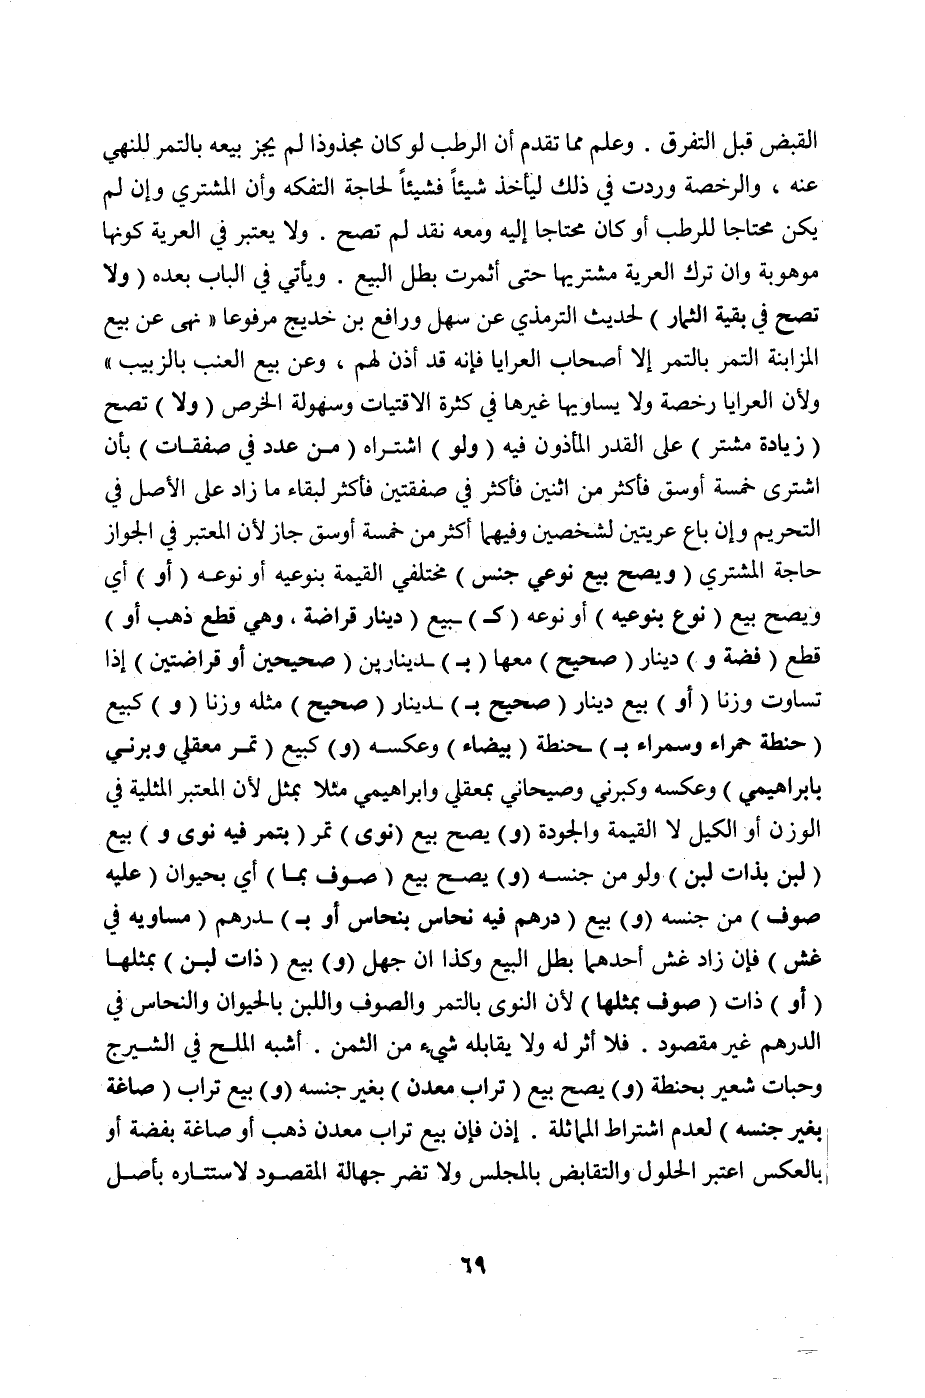 القبض قبل التفرق . وعلم مما تقدم أن الرطب لو كان مجذوذا لم يجز بيعه بالتمر للنهي
عنه ، والرخصة وردت في ذلك ليأخذ شيئاً فشيئاً لحاجة التفكه وأن المشتري وإن لم
يكن محتاجا للرطب أو كان محتاجا إليه ومعه نقد لم تصح . ولا يعتبر في العرية كونها
موهوبة وان ترك العرية مشتريها حتى أثمرت بطل البيع . ويأتي في الباب بعده ( ولا
تصح في بقية الثمار ) لحديث الترمذي عن سهل ورافع بن خديج مرفوعا « نهى عن بيع
المزابنة التمر بالتمر إلا أصحاب العرايا فإنه قد أذن لهم ، وعن بيع العنب بالزبيب »
ولأن العرايا رخصة ولا يساويها غيرها في كثرة الاقتيات وسهولة الخرص ( ولا ) تصح
( زيادة مشتر ) على القدر المأذون فيه ( ولو ) اشتراه ( من عدد في صفقات ) بأن
اشترى خمسة أوسق فأكثر من اثنين فأكثر في صفقتين فأكثر لبقاء ما زاد على الأصل في
التحريم وإن باع عريتين لشخصين وفيهما أكثر من خمسة أوسق جاز لأن المعتبر في الجواز
حاجة المشتري ( ويصح بيع نوعي جنس ) مختلفي القيمة بنوعيه أو نوعه ( أو ) أي
ويصح بيع ( نوع بنوعيه ) أو نوعه ( كـ ) ـبيع ( دينار قراضة ، وهي قطع ذهب أو )
قطع ( فضة و ) دينار ( صحيح ) معها ( بـ ) ـدينارين ( صحيحين أو قراضتين ) إذا
تساوت وزنا ( أو ) بيع دينار ( صحيح بـ ) ـدينار ( صحيح ) مثله وزنا ( و ) كبيع
( حنطة حمراء وسمراء بـ ) ـحنطة ( بيضاء ) وعكسه (و) كبيع ( تمر معقلي وبرني
بابراهيمي ) وعكسه وكبرني وصيحاني بمعقلي وابراهيمي مثلا بمثل لأن المعتبر المثلية في
الوزن أو الكيل لا القيمة والجودة (و) يصح بيع (نوى ) تمر ( بتمر فيه نوى و ) بيع
( لبن بذات لبن ) ولو من جنسه (و) يصح بيع ( صوف بما ) أي بحيوان ( عليه
صوف ) من جنسه (و) بيع ( درهم فيه نحاس بنحاس أو بـ ) ـدرهم ( مساويه في
غش ) فإن زاد غش أحدهما بطل البيع وكذا ان جهل (و) بيع ( ذات لبن ) بمثلها
( أو ) ذات ( صوف بمثلها ) لأن النوى بالتمر والصوف واللبن بالحيوان والنحاس في
الدرهم غير مقصود . فلا أثر له ولا يقابله شيء من الثمن . أشبه الملح في الشيرج
وحبات شعير بحنطة (و) يصح بيع ( تراب معدن ) بغير جنسه (و) بيع تراب ( صاغة
بغير جنسه ) لعدم اشتراط المماثلة . إذن فإن بيع تراب معدن ذهب أو صاغة بفضة أو
بالعكس اعتبر الحلول والتقابض بالمجلس ولا تضر جهالة المقصود لاستتاره بأصل
٦٩